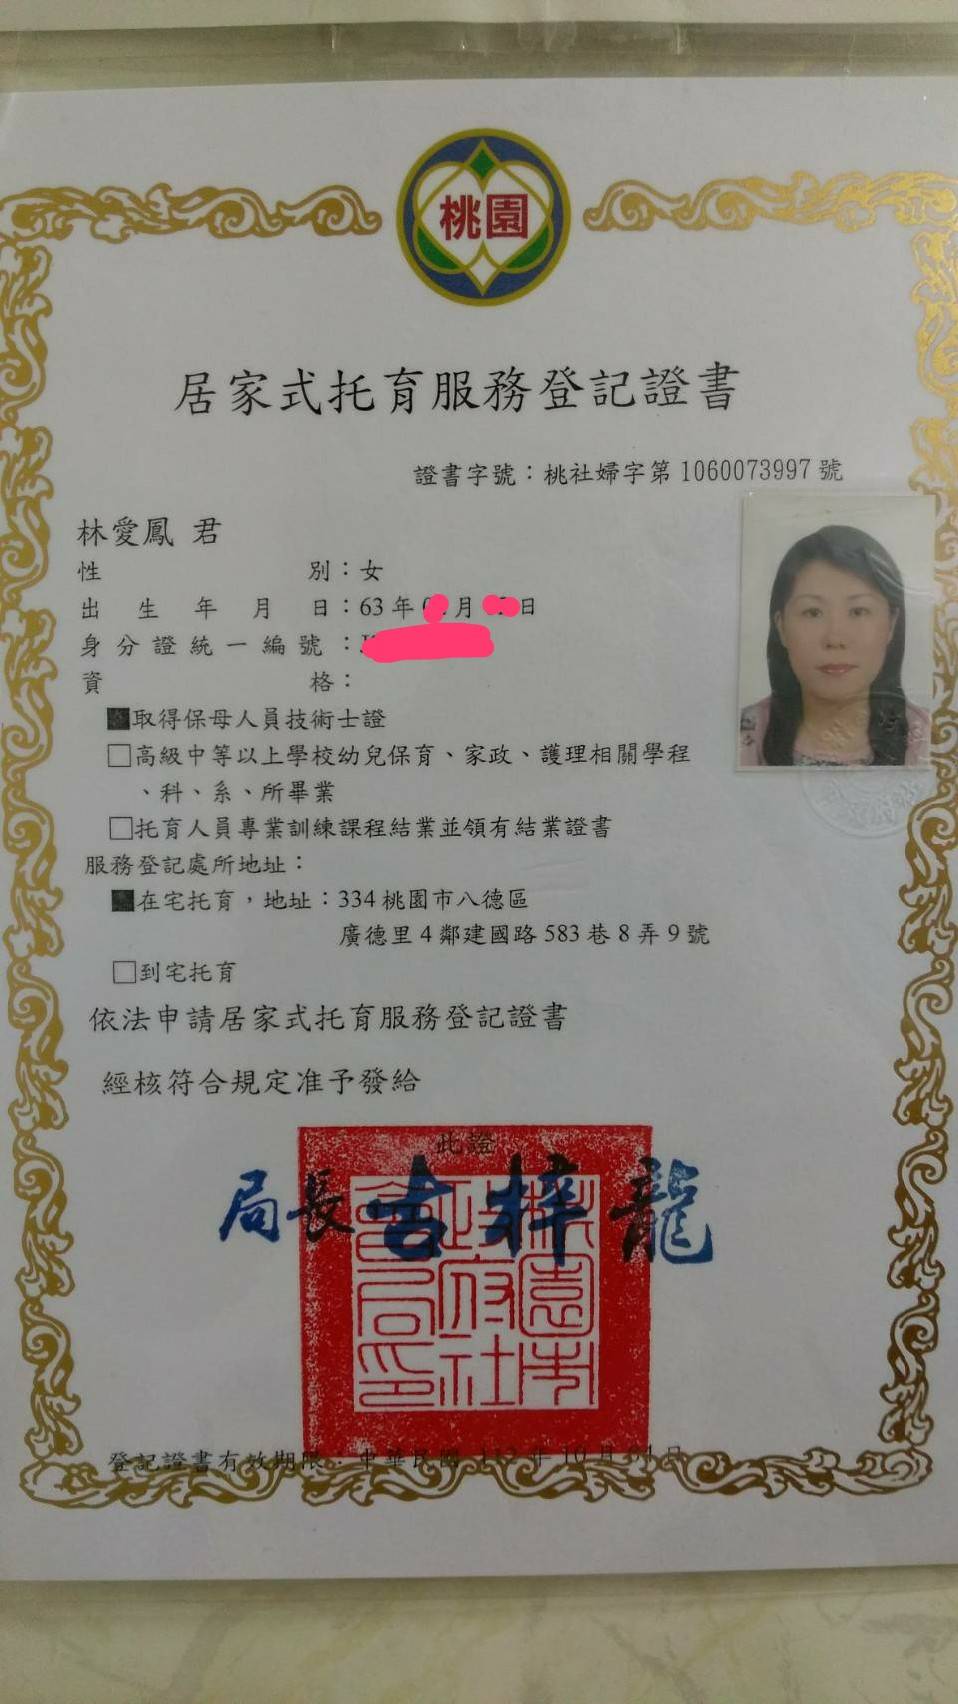 桃園
居家式托育服務登記證書
證書字號：桃社婦字第1060073997號
林愛鳳 君
性別：女
出生年月日：63年 月 日
身分證統一編號：
資格：
■取得保母人員技術士證
□高級中等以上學校幼兒保育、家政、護理相關學程
、科、系、所畢業
□托育人員專業訓練課程結業並領有結業證書
服務登記處所地址：
■在宅托育，地址：334桃園市八德區
廣德里4鄰建國路583巷8弄9號
□到宅托育
依法申請居家式托育服務登記證書
經核符合規定准予發給
此證
局長古梓龍
桃園市政府社會局印
登記證書有效期限：中華民國 112 年 10 月 04 日